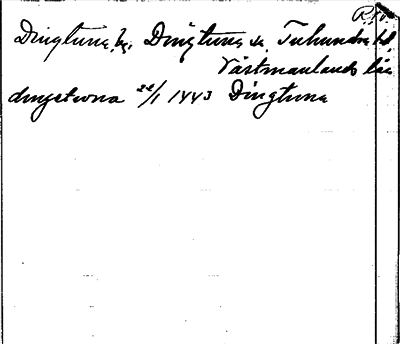 R.A.
Dingtuna by, Dingtuna sn, Tuhundra hd
Västmanlands län
dingetwna 22/1 1443 Dingtuna